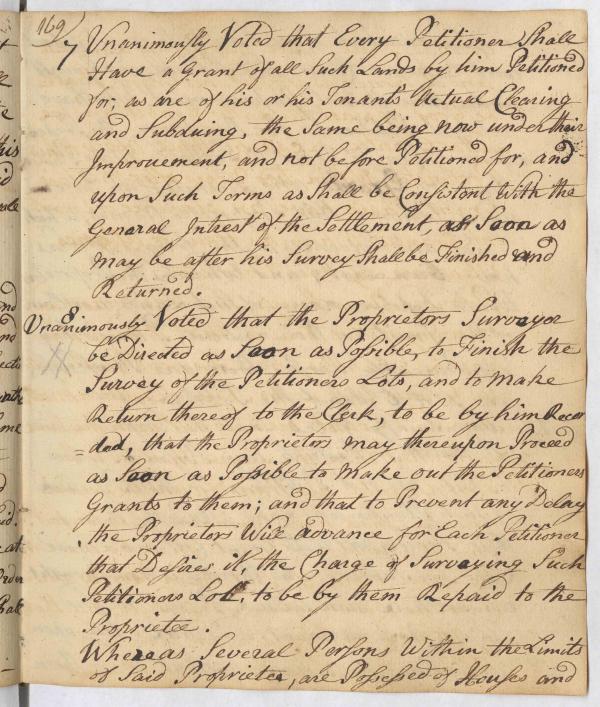 169
7 Unanimously Voted that Every Petitioner Shall
Have a Grant of all Such Lands by him Petitioned
for, as are of his or his Tenants Actual Clearing
and Subduing, the Same being now under their
Improvement, and not before Petitioned for, and
upon Such Terms as Shall be Consistant With the
General Intrest of the Settlement, as Soon as
may be after his Survey Shall be Finished and
Returned.
8
Unanimously Voted that the Proprietors Surveyor
be Directed as Soon as Possible, to Finish the
Survey of the Petitioners Lots, and to make
Return thereof to the Clerk, to be by him Recor
=ded, that the Proprietors may thereupon Proceed
as Soon as Possible to make out the Petitioners
Grants to them; and that to Prevent any Delay
the Proprietors Will advance for Each Petitioner
that Desires it, the Charge of Surveying Such
Petitioners Lot, to be by them Repaid to the
Proprietee.
Whereas Several Persons Within the Limits
of Said Proprietee, are Possessed of Houses and